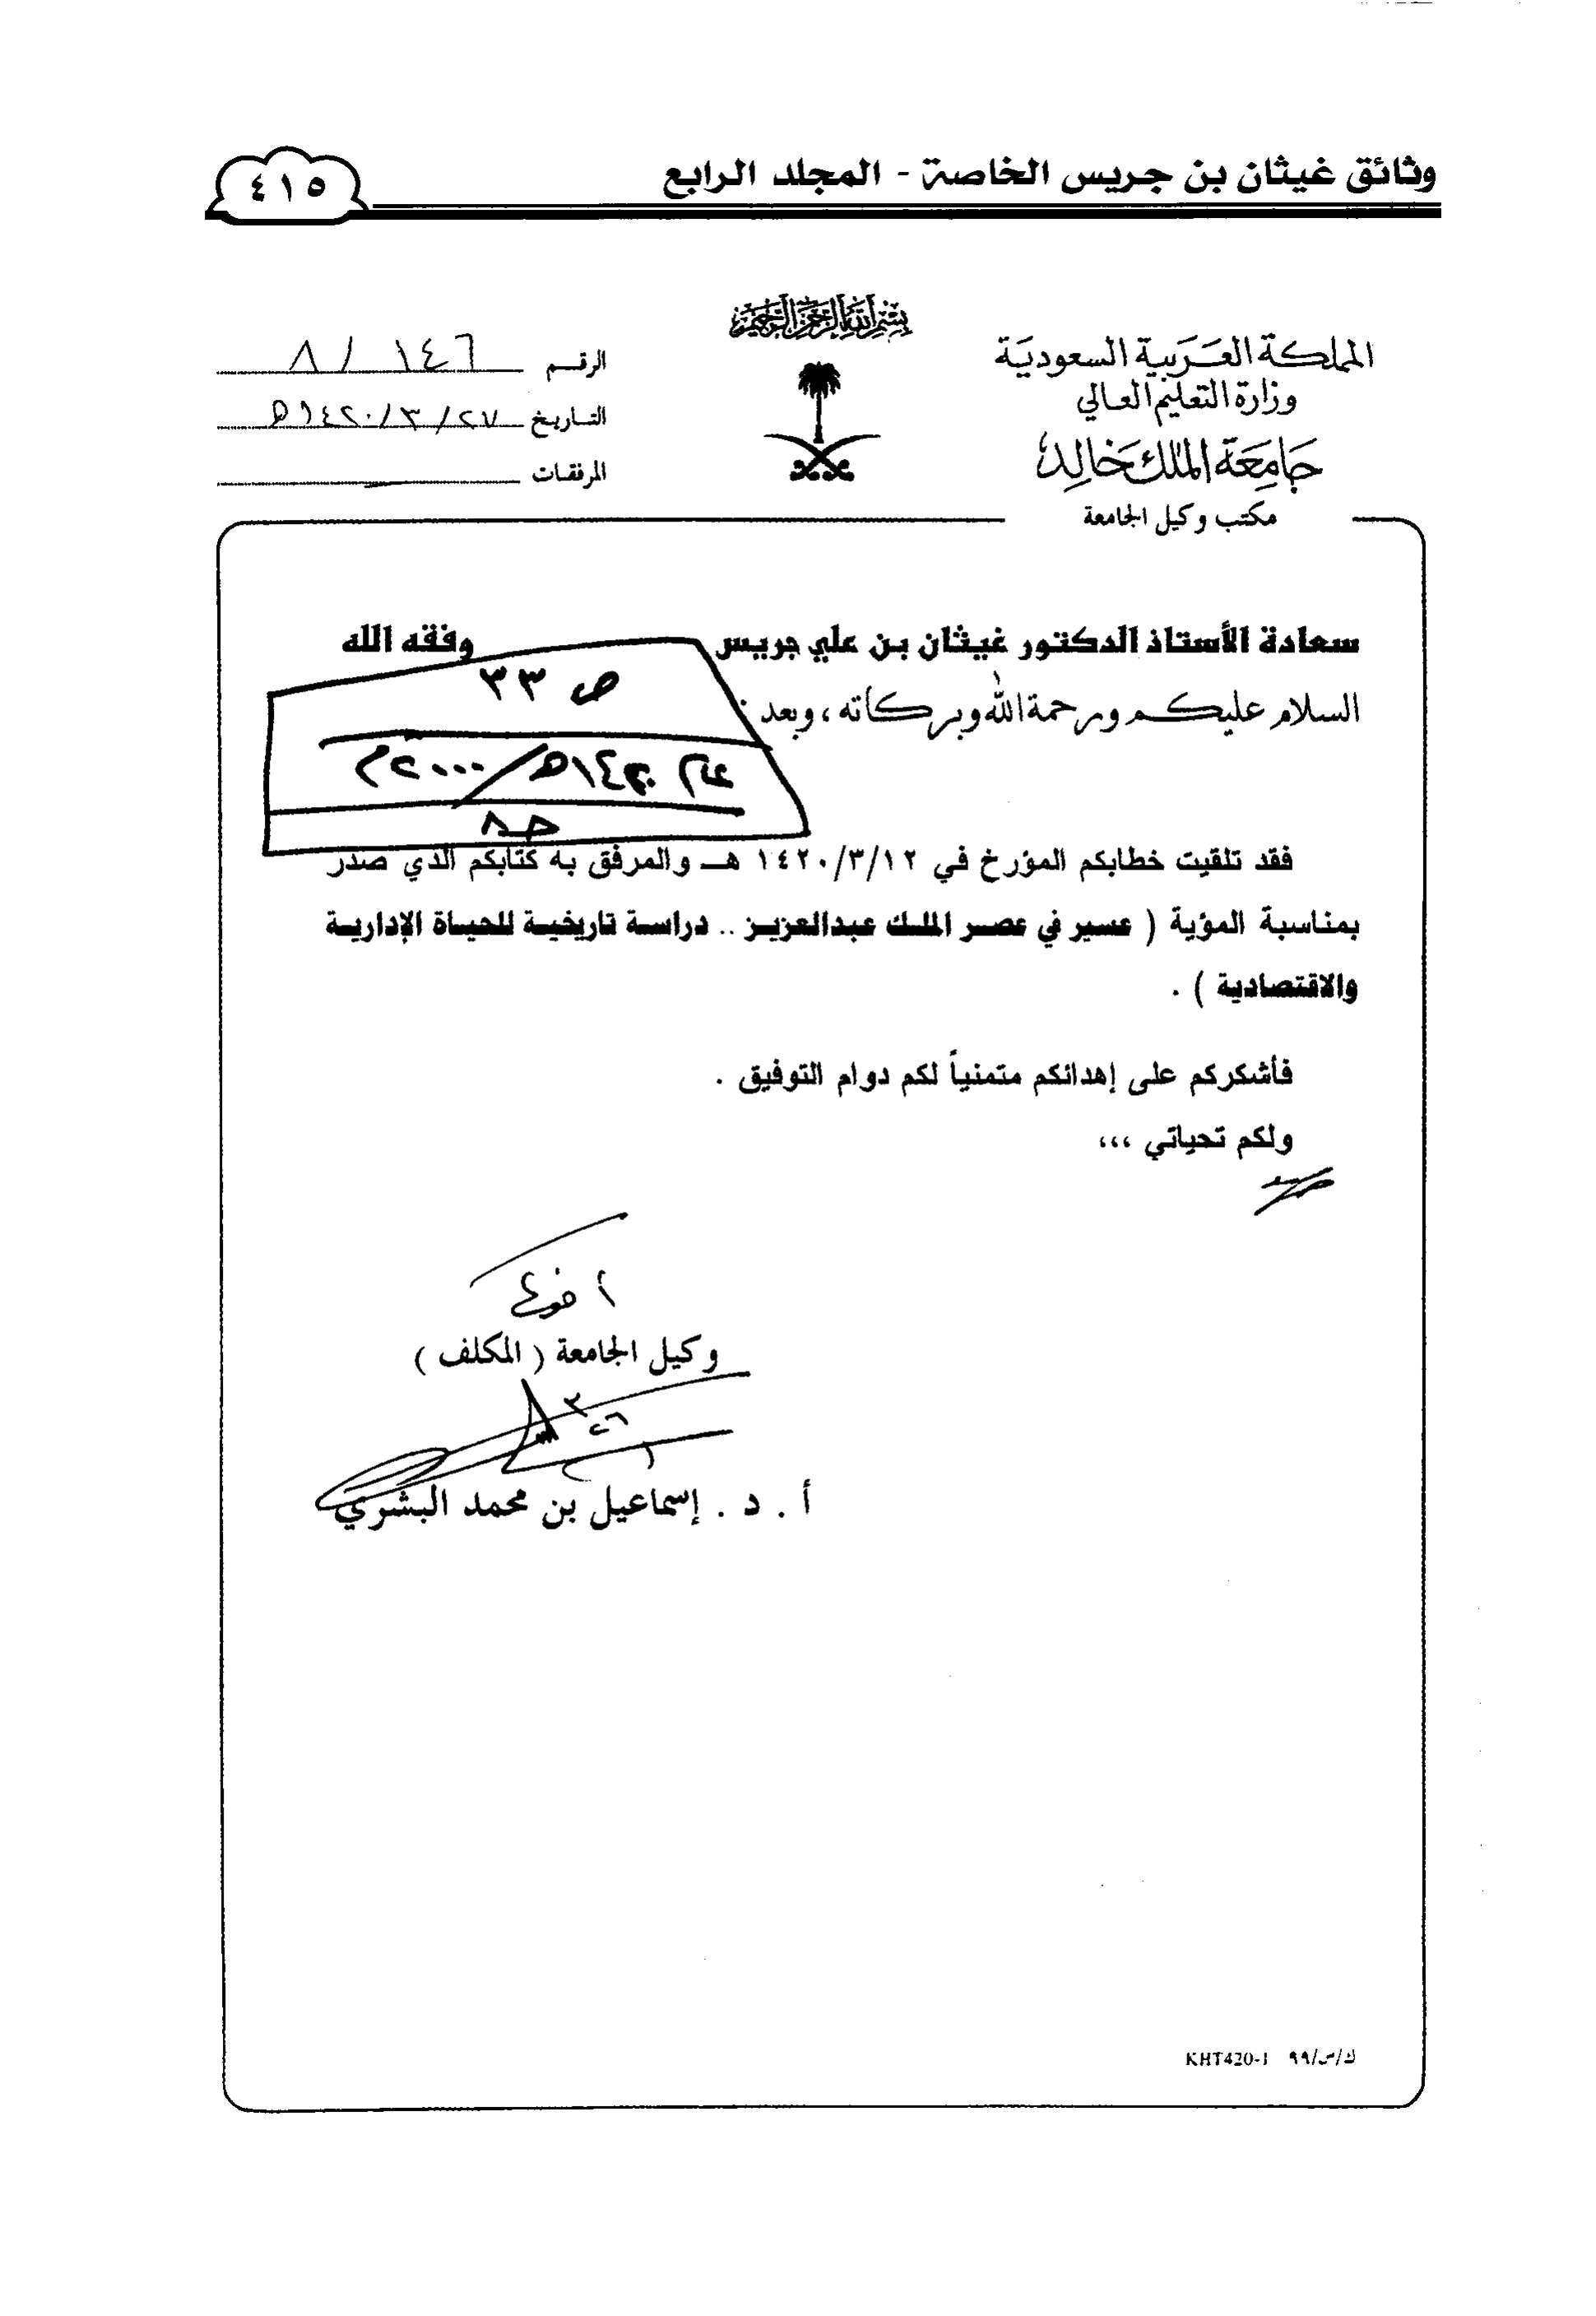 وثائق غيثان بن جريس الخاصة - المجلد الرابع
٤١٥
بسم الله الرحمن الرحيم
المملكة العربية السعودية
وزارة التعليم العالي
جامعة الملك خالد
مكتب وكيل الجامعة
الرقم ١٤٦ / ٨
التاريخ ٢٧ / ٣ / ١٤٢٠هـ
المرفقات
سعادة الأستاذ الدكتور غيثان بن علي جريس وفقه الله
السلام عليكم ورحمة الله وبركاته ، وبعد :
ص ٣٣
عام ١٤٢٠هـ / ٢٠٠٠م
ج٨
فقد تلقيت خطابكم المؤرخ في ١٤٢٠/٣/١٢ هـ والمرفق به كتابكم الذي صدر
بمناسبة المؤية ( عسير في عصر الملك عبدالعزيز .. دراسة تاريخية للحياة الإدارية
والاقتصادية ) .
فأشكركم على إهدائكم متمنياً لكم دوام التوفيق .
ولكم تحياتي ،،،
وكيل الجامعة ( المكلف )
أ . د . إسماعيل بن محمد البشري
ك/س/٩٩ KHT420-1